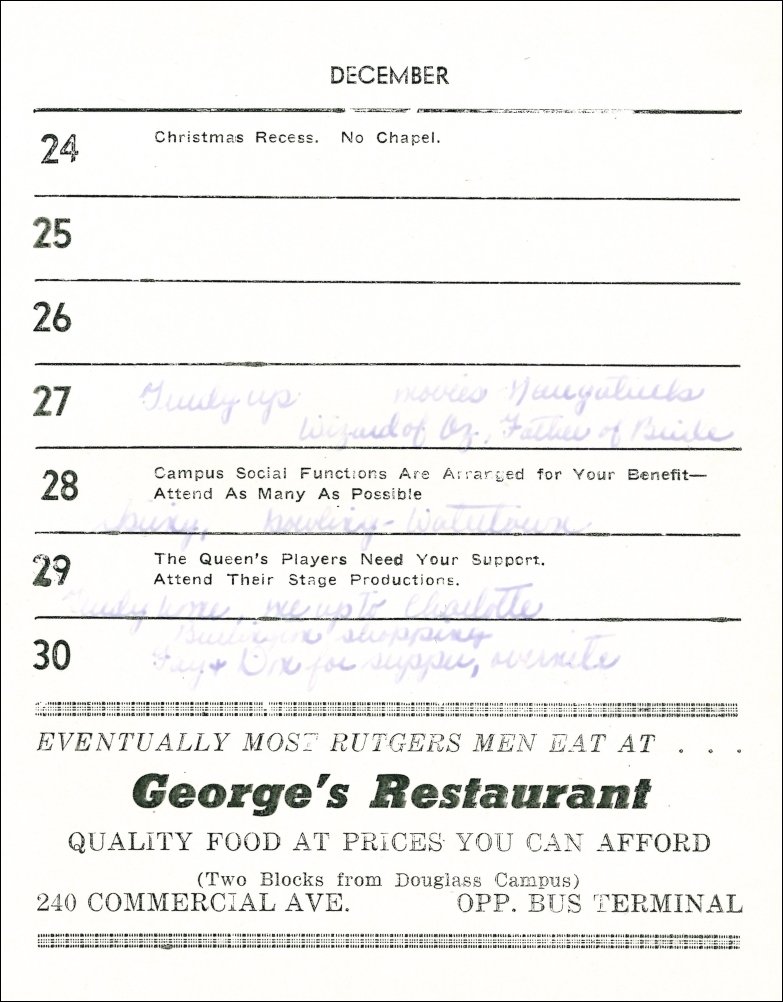 DECEMBER
24 Christmas Recess. No Chapel.
25
26
27 up movies Naugatuck
Wizard of Oz, Father of Bride
28 Campus Social Functions Are Arranged for Your Benefit—
Attend As Many As Possible
bowling - Watertown
29 The Queen's Players Need Your Support.
Attend Their Stage Productions.
home, me up to Charlotte
shopping
30 Fay + Don for supper, overnite
EVENTUALLY MOST RUTGERS MEN EAT AT . . .
George's Restaurant
QUALITY FOOD AT PRICES YOU CAN AFFORD
(Two Blocks from Douglass Campus)
240 COMMERCIAL AVE. OPP. BUS TERMINAL